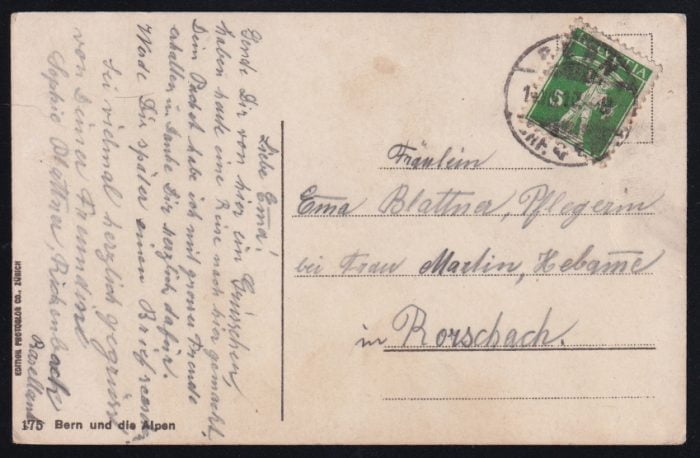 Liebe Ema!
Sende Dir von hier ein Grüsschen,
haben heute eine Reise nach hier gemacht,
Dein Packet habe ich mit grosser Freude
erhalten u. danke Dir herzlich dafür.
Werde Dir später einen Brief senden
Sei vielmal herzlich gegrüsst
von Deiner Freundin
Sophie Blattner, Rickenbach
Baselland
HELVETIA
Fräulein
Ema Blattner, Pflegerin
bei Frau Martin, Hebame
in Rorschach.
EDITION PHOTOGLOB CO., ZÜRICH
175 Bern und die Alpen